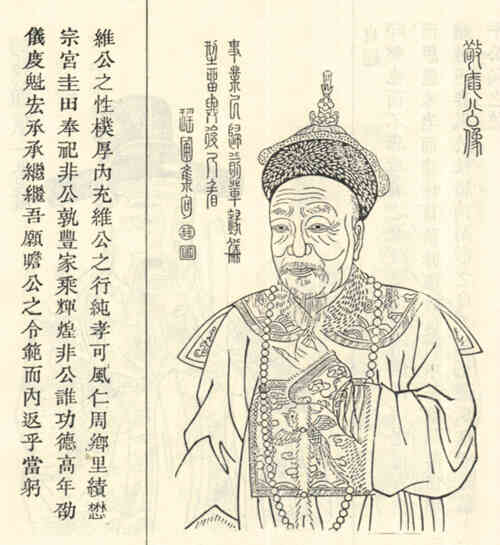 敬庵公像
事業久歸前輩錄典
型留與後人看
園集句
維公之性樸厚內充維公之行純孝可風仁周鄉里績懋
宗宮圭田奉祀非公孰豐家乘輝煌非公誰功德高年劭
儀度魁宏承承繼繼吾願瞻公之令範而內返乎當躬